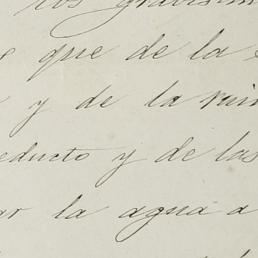 los gravísim
e que de la
y de la ruin
educto y de las
ar la agua a